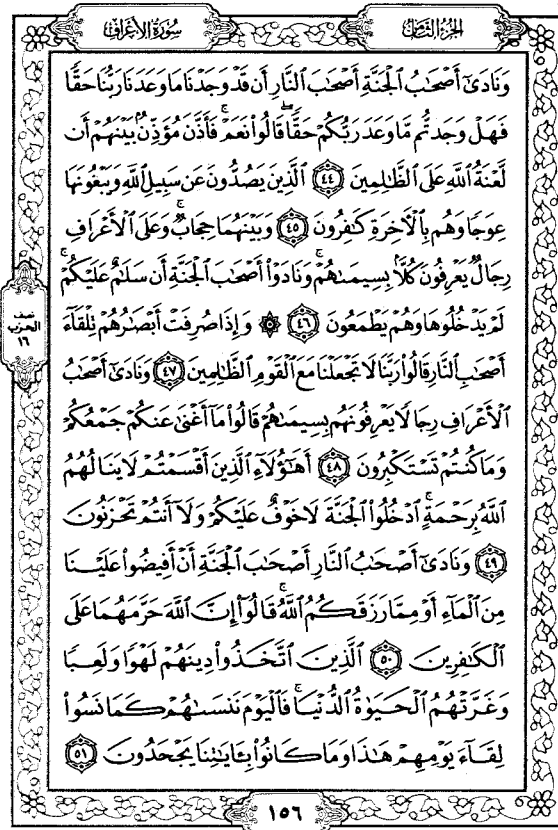 سُورَةُ الأَعْرَافِ
الجُزْءُ الثَّامِنُ
وَنَادَىٰٓ أَصْحَٰبُ ٱلْجَنَّةِ أَصْحَٰبَ ٱلنَّارِ أَن قَدْ وَجَدْنَا مَا وَعَدَنَا رَبُّنَا حَقًّا
فَهَلْ وَجَدتُّم مَّا وَعَدَ رَبُّكُمْ حَقًّا ۖ قَالُوا۟ نَعَمْ ۚ فَأَذَّنَ مُؤَذِّنٌۢ بَيْنَهُمْ أَن
لَّعْنَةُ ٱللَّهِ عَلَى ٱلظَّٰلِمِينَ ٤٤ ٱلَّذِينَ يَصُدُّونَ عَن سَبِيلِ ٱللَّهِ وَيَبْغُونَهَا
عِوَجًا وَهُم بِٱلْـَٔاخِرَةِ كَٰفِرُونَ ٤٥ وَبَيْنَهُمَا حِجَابٌ ۚ وَعَلَى ٱلْأَعْرَافِ
رِجَالٌ يَعْرِفُونَ كُلًّۢا بِسِيمَىٰهُمْ ۚ وَنَادَوْا۟ أَصْحَٰبَ ٱلْجَنَّةِ أَن سَلَٰمٌ عَلَيْكُمْ ۚ
لَمْ يَدْخُلُوهَا وَهُمْ يَطْمَعُونَ ٤٦ ۞ وَإِذَا صُرِفَتْ أَبْصَٰرُهُمْ تِلْقَآءَ
أَصْحَٰبِ ٱلنَّارِ قَالُوا۟ رَبَّنَا لَا تَجْعَلْنَا مَعَ ٱلْقَوْمِ ٱلظَّٰلِمِينَ ٤٧ وَنَادَىٰٓ أَصْحَٰبُ
ٱلْأَعْرَافِ رِجَالًا يَعْرِفُونَهُم بِسِيمَىٰهُمْ قَالُوا۟ مَآ أَغْنَىٰ عَنكُمْ جَمْعُكُمْ
وَمَا كُنتُمْ تَسْتَكْبِرُونَ ٤٨ أَهَٰٓؤُلَآءِ ٱلَّذِينَ أَقْسَمْتُمْ لَا يَنَالُهُمُ
ٱللَّهُ بِرَحْمَةٍ ۚ ٱدْخُلُوا۟ ٱلْجَنَّةَ لَا خَوْفٌ عَلَيْكُمْ وَلَآ أَنتُمْ تَحْزَنُونَ
٤٩ وَنَادَىٰٓ أَصْحَٰبُ ٱلنَّارِ أَصْحَٰبَ ٱلْجَنَّةِ أَنْ أَفِيضُوا۟ عَلَيْنَا
مِنَ ٱلْمَآءِ أَوْ مِمَّا رَزَقَكُمُ ٱللَّهُ ۚ قَالُوٓا۟ إِنَّ ٱللَّهَ حَرَّمَهُمَا عَلَى
ٱلْكَٰفِرِينَ ٥٠ ٱلَّذِينَ ٱتَّخَذُوا۟ دِينَهُمْ لَهْوًا وَلَعِبًا
وَغَرَّتْهُمُ ٱلْحَيَوٰةُ ٱلدُّنْيَا ۚ فَٱلْيَوْمَ نَنسَىٰهُمْ كَمَا نَسُوا۟
لِقَآءَ يَوْمِهِمْ هَٰذَا وَمَا كَانُوا۟ بِـَٔايَٰتِنَا يَجْحَدُونَ ٥١
نصف
الحزب
١٦
١٥٦